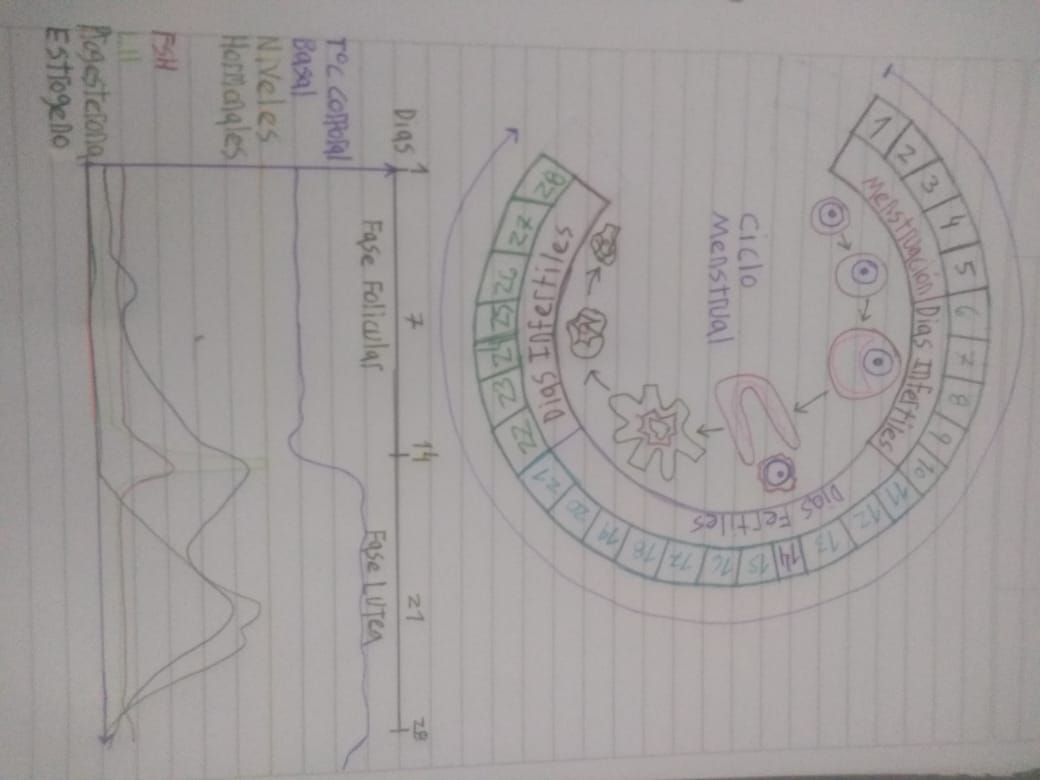 1 2 3 4 5 6 7 8 9 10 11 12 13 14 15 16 17 18 19 20 21 22 23 24 25 26 27 28
Menstruación
Dias Infertiles
Dias Fertiles
Dias Infertiles
Ciclo
Menstrual
Dias 1 7 14 21 28
Fase Folicular
Fase Lutea
T°C corporal
Basal
Niveles
Hormonales
FSH
LH
Progesterona
Estrogeno